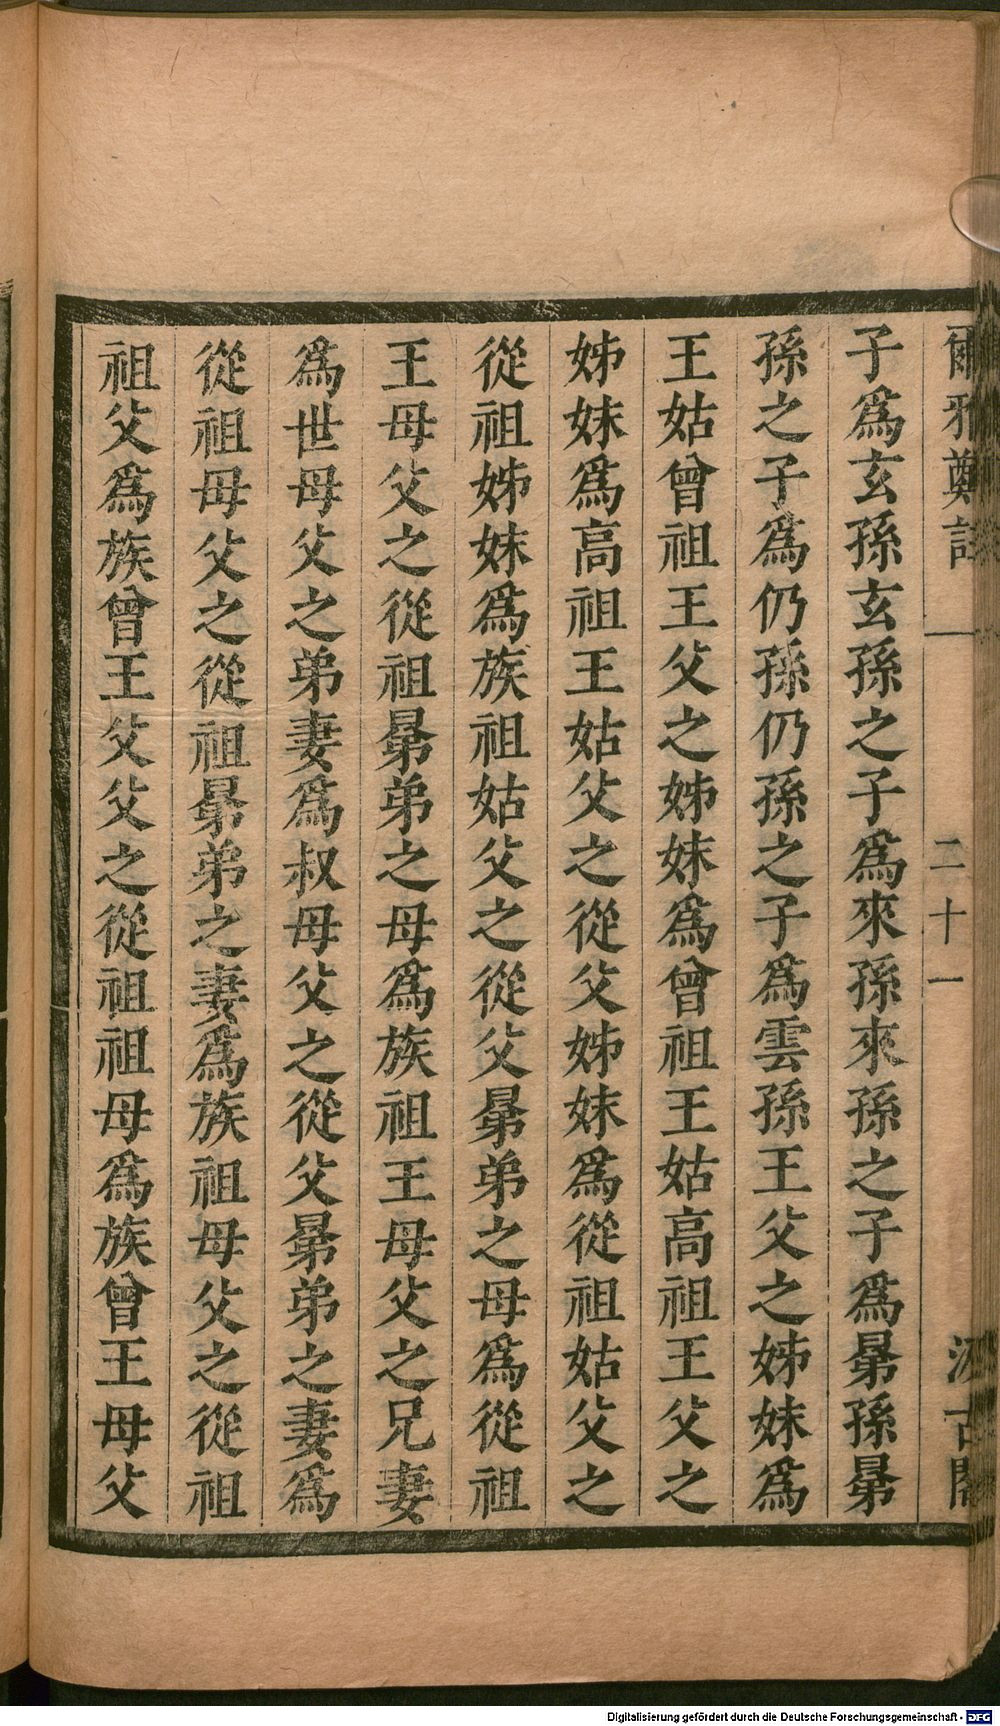 爾雅鄭註 一 二十一 汲古閣
子爲玄孫玄孫之子爲來孫來孫之子爲晜孫晜
孫之子爲仍孫仍孫之子爲雲孫王父之姊妹爲
王姑曾祖王父之姊妹爲曾祖王姑高祖王父之
姊妹爲高祖王姑父之從父姊妹爲從祖姑父之
從祖姊妹爲族祖姑父之從父晜弟之母爲從祖
王母父之從祖晜弟之母爲族祖王母父之兄妻
爲世母父之弟妻爲叔母父之從父晜弟之妻爲
從祖母父之從祖晜弟之妻爲族祖母父之從祖
祖父爲族曾王父父之從祖祖母爲族曾王母父
Digitalisierung gefördert durch die Deutsche Forschungsgemeinschaft - DFG